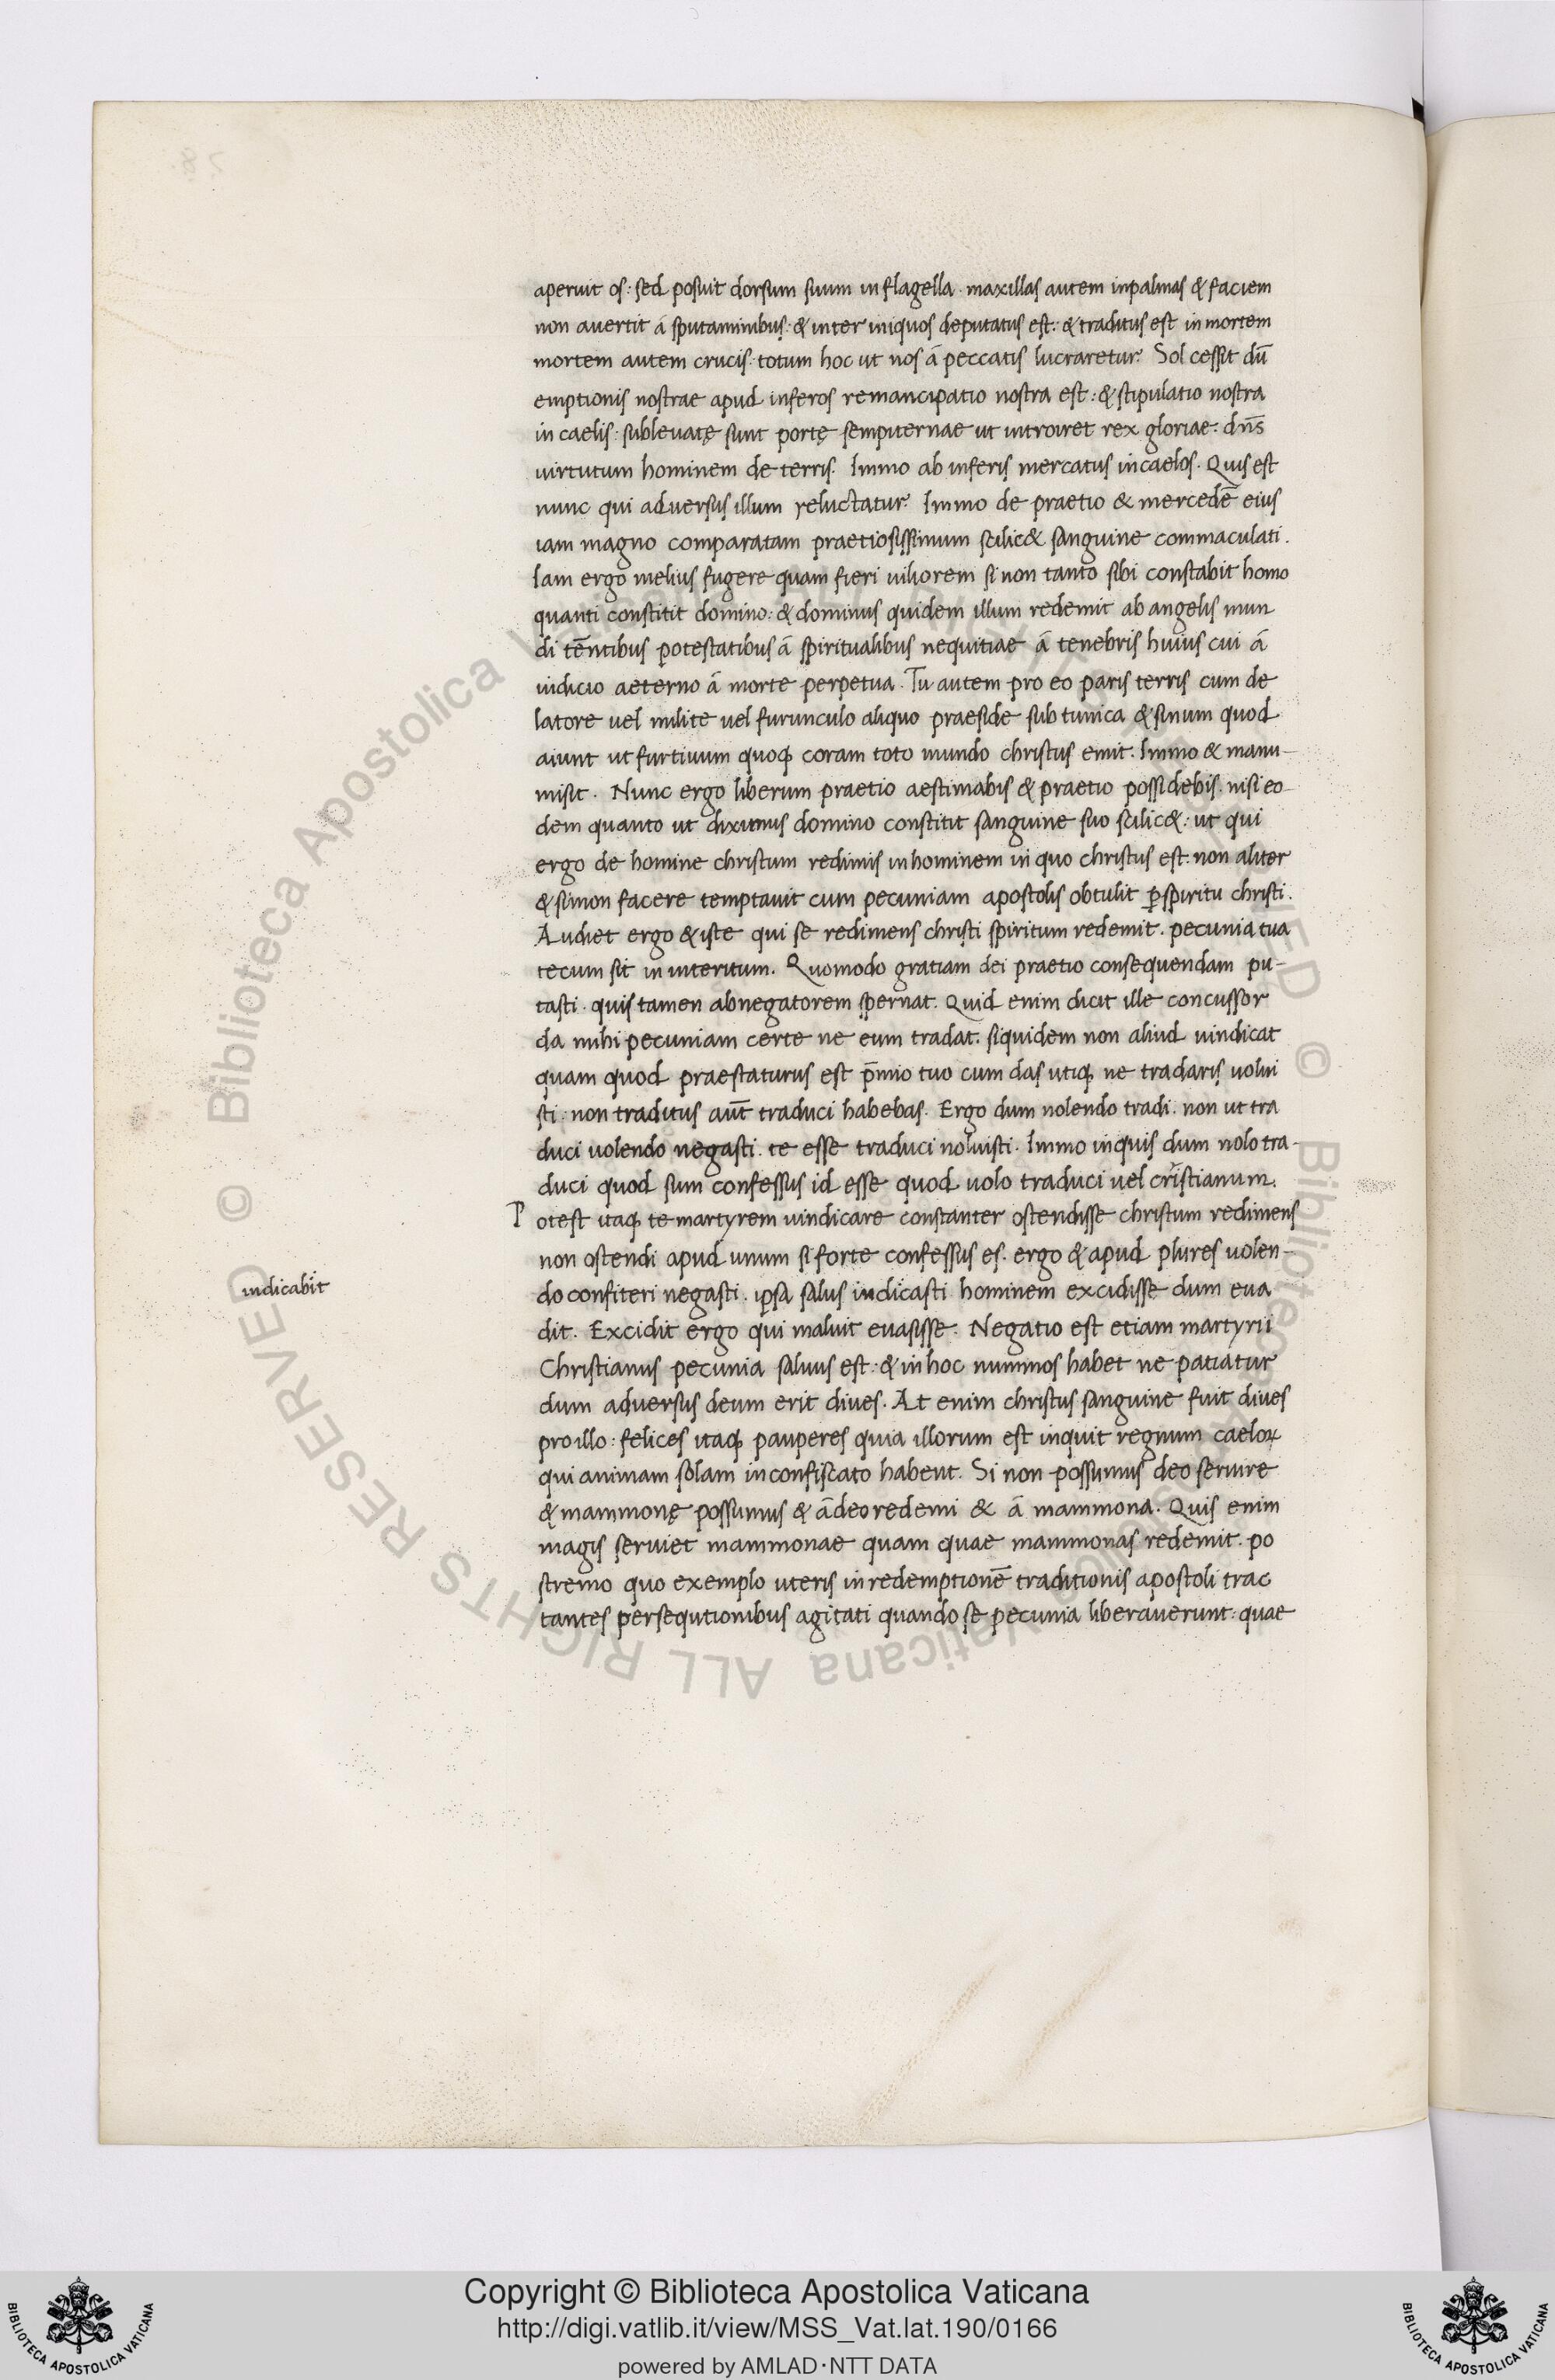 aperuit os: sed posuit dorsum suum in flagella. maxillas autem inpalmas & faciem
non auertit á sputaminibus: & inter iniquos deputatus est: & traditus est in mortem
mortem autem crucis: totum hoc ut nos á peccatis lucraretur. Sol cessit dū
emptionis nostrae apud inferos remancipatio nostra est: & stipulatio nostra
in caelis: subleuatę sunt portę sempiternae ut introiret rex gloriae: dn̄s
uirtutum hominem de terris. Immo ab inferis mercatus incaelos. Quis est
nunc qui aduersus illum reluctatur. Immo de praetio & mercedē eius
iam magno comparatam praetiosissimum scilic& sanguine commaculati.
Iam ergo melius fugere quam fieri uiliorem si non tanto sibi constabit homo
quanti constitit domino: & dominus quidem illum redemit ab angelis mun
di tēntibus potestatibus á spiritualibus nequitiae á tenebris huius cui á
iudicio aeterno á morte perpetua. Tu autem pro eo paris terris cum de
latore uel milite uel furunculo aliquo praeside sub tunica & sinum quod
aiunt ut furtiuum quoq; coram toto mundo christus emit. Immo & manu-
misit. Nunc ergo liberum praetio aestimabis & praetio possidebis. nisi eo-
dem quanto ut diximus domino constitit sanguine suo scilic&: ut qui
ergo de homine christum redimis inhominem in quo christus est. non aliter
& simon facere temptauit cum pecuniam apostolis obtulit ꝑ spiritu christi.
Audiet ergo & iste qui se redimens christi spiritum redemit. pecunia tua
tecum sit in interitum. Quomodo gratiam dei praetio consequendam pu-
tasti. quis tamen abnegatorem spernat. Quid enim dicit ille concussor
da mihi pecuniam certe ne eum tradat. siquidem non aliud uindicat
quam quod praestaturus est p̄mio tuo cum das utiq; ne tradaris uolui
sti: non traditus aūt traduci habebas. Ergo dum nolendo tradi. non ut tra
duci uolendo negasti. te esse traduci noluisti. Immo inquis dum nolo tra-
duci quod sum confessus id esse quod uolo traduci uel cristianum.
Potest itaq; te martyrem uindicare constanter ostendisse christum redimens
non ostendi apud unum si forte confessus es. ergo & apud plures uolen-
do confiteri negasti. ipsa salus indicasti hominem excidisse dum eua
indicabit
dit. Excidit ergo qui maluit euasisse. Negatio est etiam martyrii
Christianus pecunia saluus est: & in hoc nummos habet ne patiatur
dum aduersus deum erit diues. At enim christus sanguine fuit diues
pro illo: felices itaq; pauperes quia illorum est inquit regnum caeloꝝ
qui animam solam inconfiscato habent. Si non possumus deo seruire
& mammonę possumus & ádeo redemi & á mammona. Quis enim
magis seruiet mammonae quam quae mammonas redemit. po
stremo quo exemplo uteris in redemptionē traditionis apostoli trac
tantes persequtionibus agitati quando se pecunia liberauerunt: quae
Copyright © Biblioteca Apostolica Vaticana
http://digi.vatlib.it/view/MSS_Vat.lat.190/0166
powered by AMLAD·NTT DATA